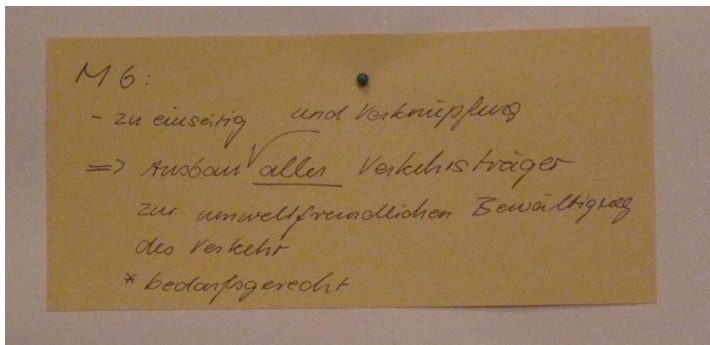 M 6:
- zu einseitig und Verknüpfung
=> Ausbau aller Verkehrsträger
zur umweltfreundlichen Bewältigung
des Verkehr
* bedarfsgerecht